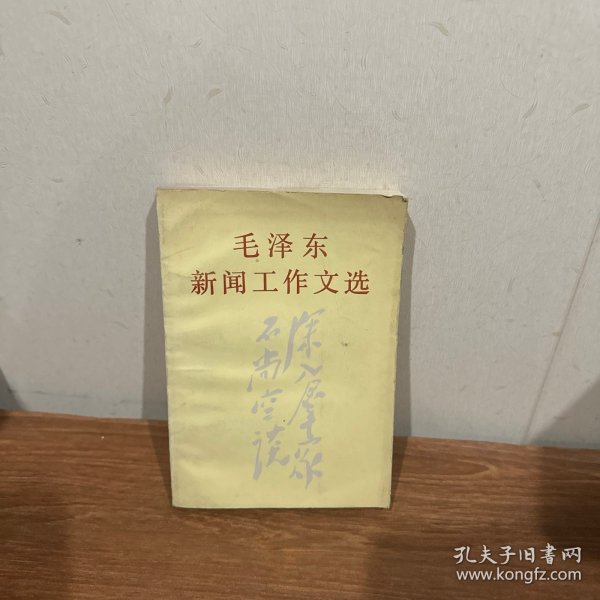 毛泽东
新闻工作文选
深入群众
不尚空谈
孔夫子旧書网
www.kongfz.com